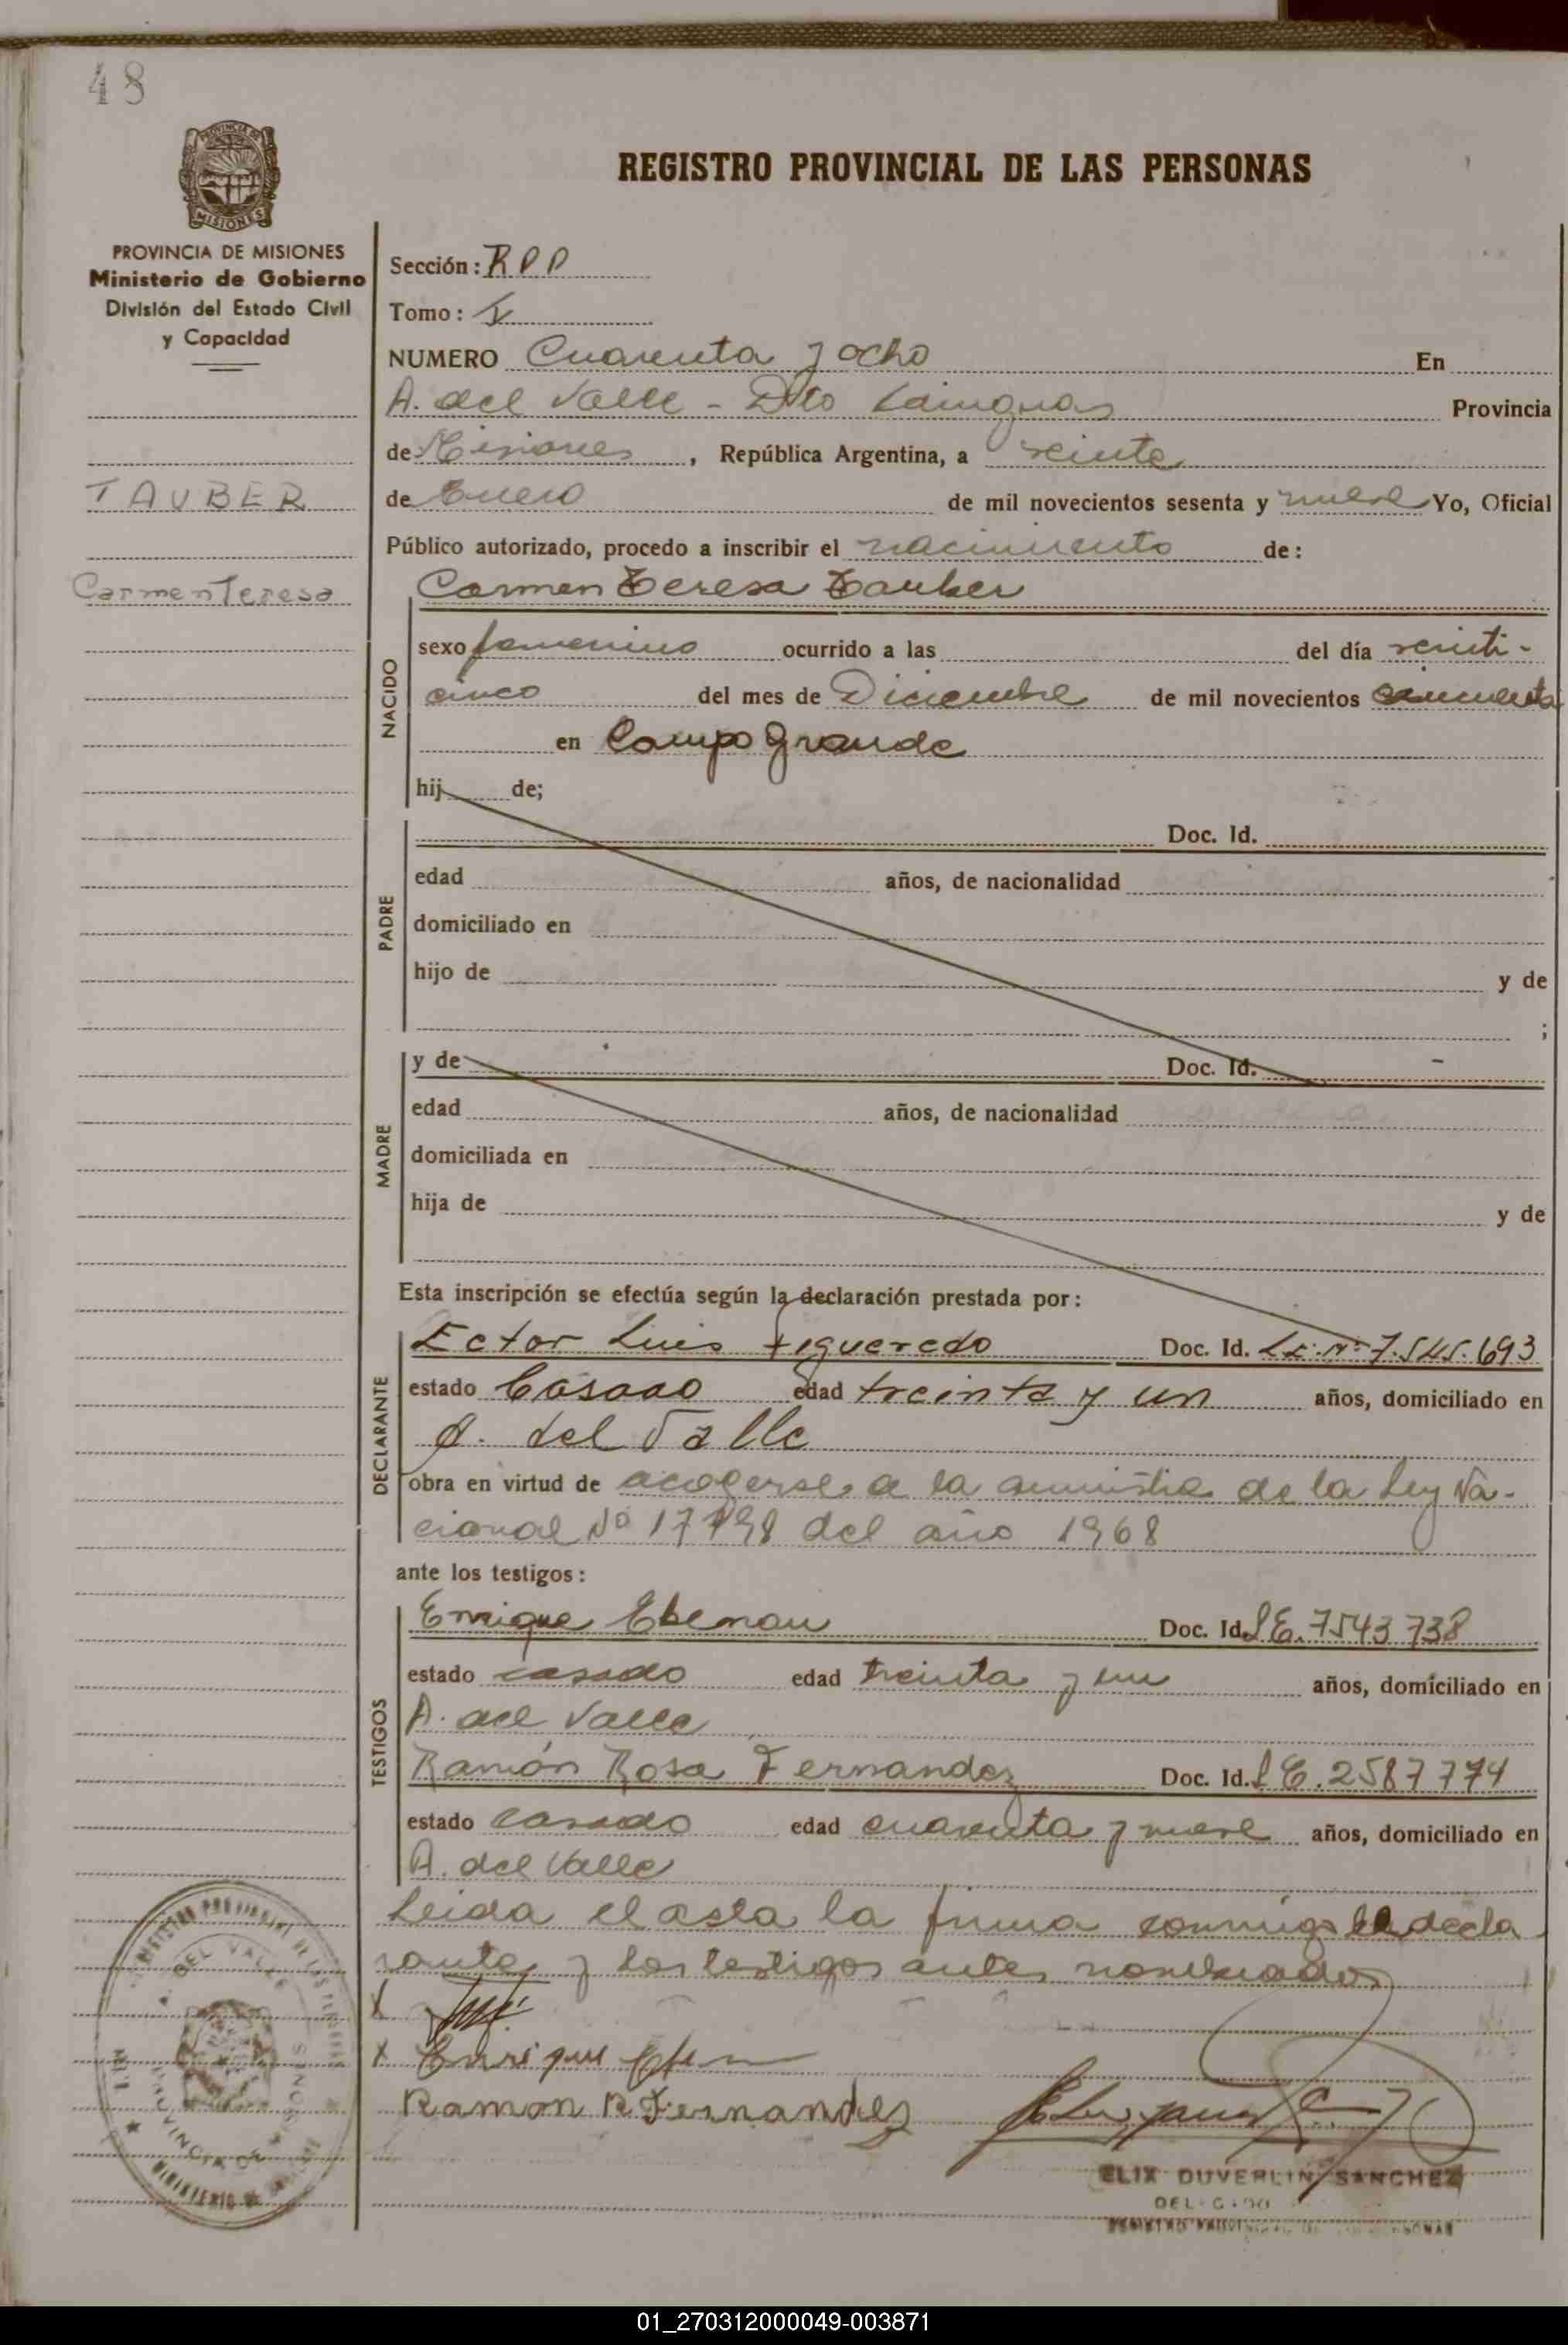 48
PROVINCIA DE MISIONES
REGISTRO PROVINCIAL DE LAS PERSONAS
PROVINCIA DE MISIONES
Ministerio de Gobierno
División del Estado Civil
y Capacidad
Sección: R P P
Tomo: I
NUMERO Cuarenta y ocho En
A. del Valle - Dto Cainguas Provincia
de Misiones, República Argentina, a veinte
TAUBER
de Enero de mil novecientos sesenta y nueve Yo, Oficial
Público autorizado, procedo a inscribir el nacimiento de:
Carmen Teresa
Carmen Teresa Tauber
NACIDO
sexo femenino ocurrido a las del día veinti-
cinco del mes de Diciembre de mil novecientos cincuenta
en Campo Grande
hij de;
PADRE
Doc. Id.
edad años, de nacionalidad
domiciliado en
hijo de y de
;
MADRE
y de Doc. Id. -
edad años, de nacionalidad
domiciliada en
hija de y de
Esta inscripción se efectúa según la declaración prestada por:
DECLARANTE
Ector Luis Figueredo Doc. Id. L.E. Nº 7.545.693
estado Casado edad treinta y un años, domiciliado en
A. del Valle
obra en virtud de acogerse a la amnistia de la Ley Na-
cional Nº del año 1968
ante los testigos:
TESTIGOS
Enrique Ebenau Doc. Id. L E. 7543738
estado casado edad treinta y un años, domiciliado en
A. del Valle
Ramón Rosa Fernandez Doc. Id. L E. 2587774
estado casado edad cuarenta y nueve años, domiciliado en
A. del Valle
Leida el acta la firma conmigo el decla
rante y los testigos antes nombrados
X
X Enrique
Ramon R Fernandez
ELIX DUVERLIN SANCHEZ
DELEGADO
01_270312000049-003871